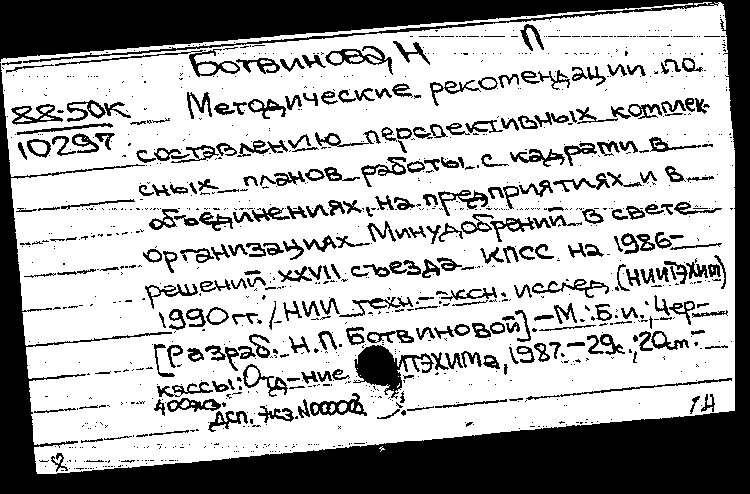 Ботвинова, Н П
88-50К Методические рекомендации по
10297 составлению перспективных комплек-
сных планов работы с кадрами в
объединениях, на предприятиях и в
организациях Минудобрений в свете
решений XXVII съезда КПСС на 1986-
1990 гг. / НИИ техн.-экон. исслед. (НИИТЭХИМ)
[Разраб. Н.П. Ботвиновой]. - М.: Б.и.; Чер-
кассы: Отд-ние ИТЭХИМа, 1987. - 29с.; 20см. -
400экз.
ДСП. Экз.N00003.
14